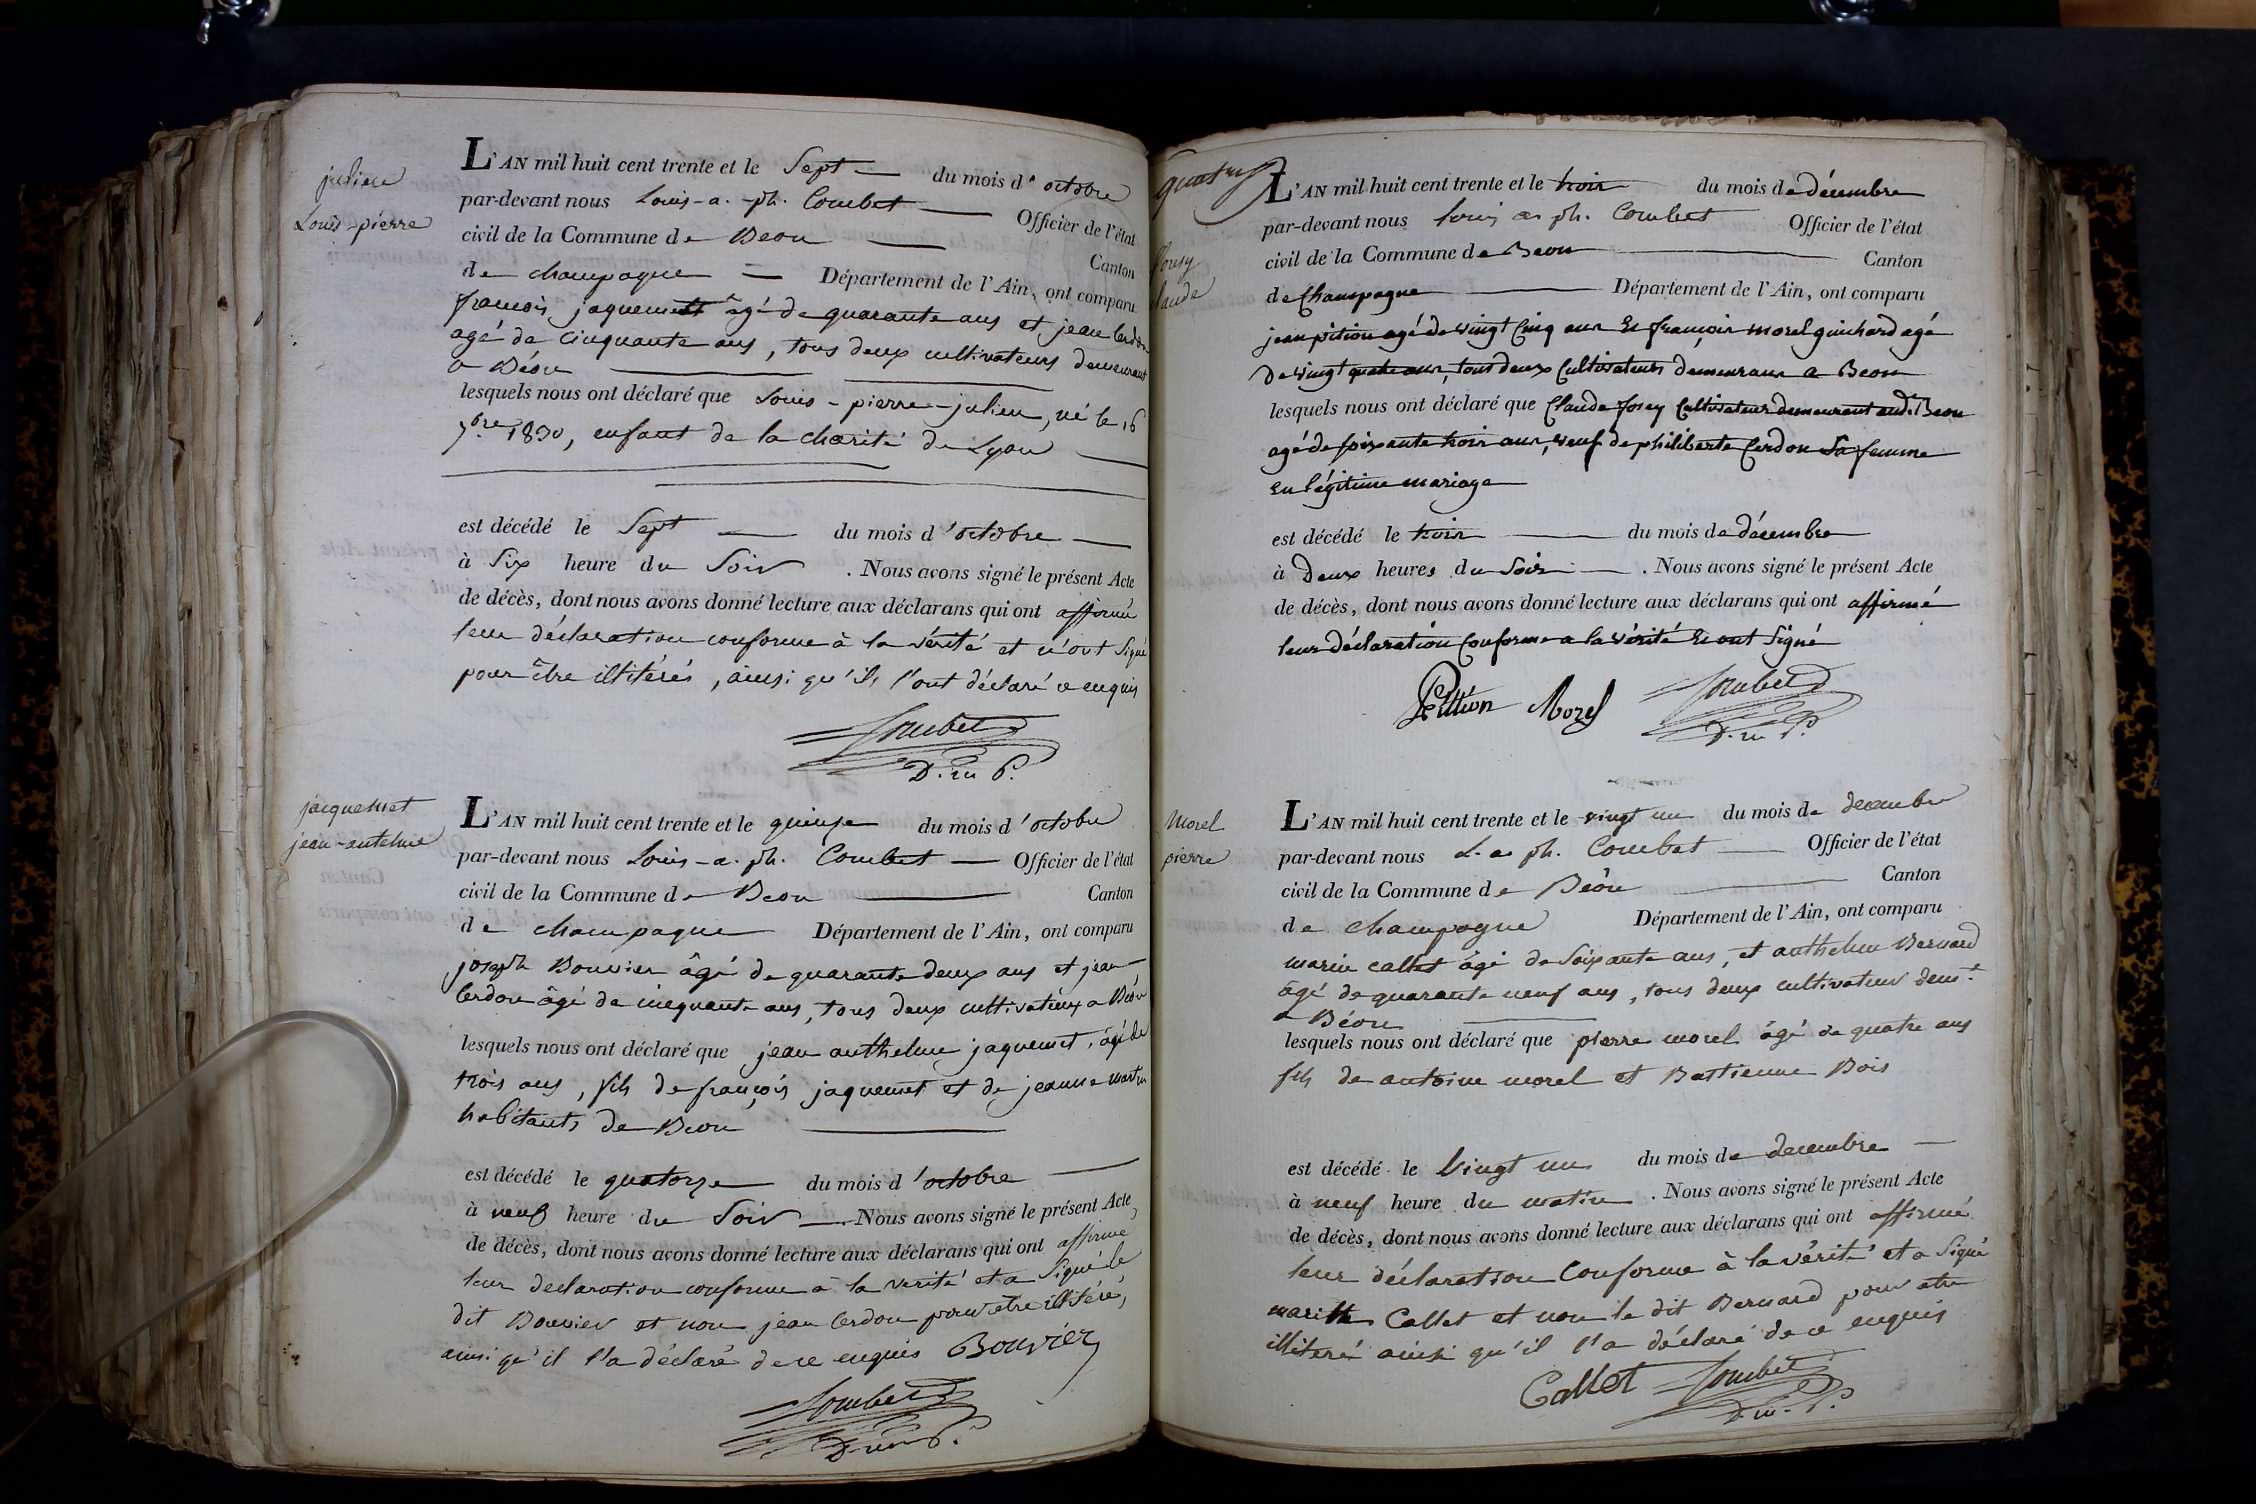 julien
Louis-pierre
L'AN mil huit cent trente et le Sept du mois d'octobre
par-devant nous Louis-a.-ph. Combet Officier de l'état
civil de la Commune de Beon Canton
de champagne Département de l'Ain, ont comparu
françois jaquemet âgé de quarante ans et jean Cerdon
agé de cinquante ans, tous deux cultivateurs demeurant
a Béon
lesquels nous ont déclaré que Louis-pierre-julien, né le 16
7bre 1830, enfant de la charité de Lyon
est décédé le Sept du mois d'octobre
à Six heure du Soir. Nous avons signé le présent Acte
de décès, dont nous avons donné lecture aux déclarans qui ont affirmé
leur déclaration conforme à la vérité et n'ont Signé
pour être illitérés, ainsi qu'ils l'ont déclaré ce enquis
Combet
D. m P.
jacquemet
jean-antelme
L'AN mil huit cent trente et le quinze du mois d'octobre
par-devant nous Louis-a. ph. Combet Officier de l'état
civil de la Commune de Beon Canton
de champagne Département de l'Ain, ont comparu
joseph Bouvier âgé de quarante deux ans et jean
Cerdon âgé de cinquante ans, tous deux cultivateurs a Béon
lesquels nous ont déclaré que jean anthelme jaquemet, âgé de
trois ans, fils de françois jaquemet et de jeanne martin
habitants de Beon
est décédé le quatorze du mois d'octobre
à neuf heure du Soir. Nous avons signé le présent Acte
de décès, dont nous avons donné lecture aux déclarans qui ont affirmé
leur declaration conforme à la verité et a Signé le
dit Bouvier et non jean Cerdon pour être illitéré,
ainsi qu'il l'a déclaré de ce enquis Bouvier
Combet
D. m P.
quatre
L'AN mil huit cent trente et le trois du mois de décembre
par-devant nous Louis a. ph. Combet Officier de l'état
civil de la Commune de Beon Canton
de Champagne Département de l'Ain, ont comparu
jean pition agé de vingt Cinq ans Et françois morel guichard agé
De vingt quatre ans, tous deux Cultivateurs demeurans a Beon
lesquels nous ont déclaré que Claude fosey Cultivateur demeurant audt Beon
agé de soixante trois ans, veuf de philiberte Cerdon Sa femme
En légitime mariage
est décédé le trois du mois de décembre
à Deux heures du Soir. Nous avons signé le présent Acte
de décès, dont nous avons donné lecture aux déclarans qui ont affirmé
leur déclaration Conforme a la vérité Et ont Signé
Pittion Morel Combet
D. m P.
Morel
pierre
L'AN mil huit cent trente et le vingt un du mois de decembre
par-devant nous L. a. ph. Combet Officier de l'état
civil de la Commune de Béon Canton
de champagne Département de l'Ain, ont comparu
marin callet âgé de Soixante ans, et anthelme Bernard
âgé de quarante neuf ans, tous deux cultivateurs demt
a Béon
lesquels nous ont déclaré que pierre morel âgé de quatre ans
fils de antoine morel et Bastienne Bois
est décédé le Vingt un du mois de decembre
à neuf heure du matin. Nous avons signé le présent Acte
de décès, dont nous avons donné lecture aux déclarans qui ont affirmé
leur déclaration Conforme à la vérité et a Signé
Callet et non le dit Bernard pour etre
illiteré ainsi qu'il l'a déclaré de ce enquis
Callet Combet
D. m. P.